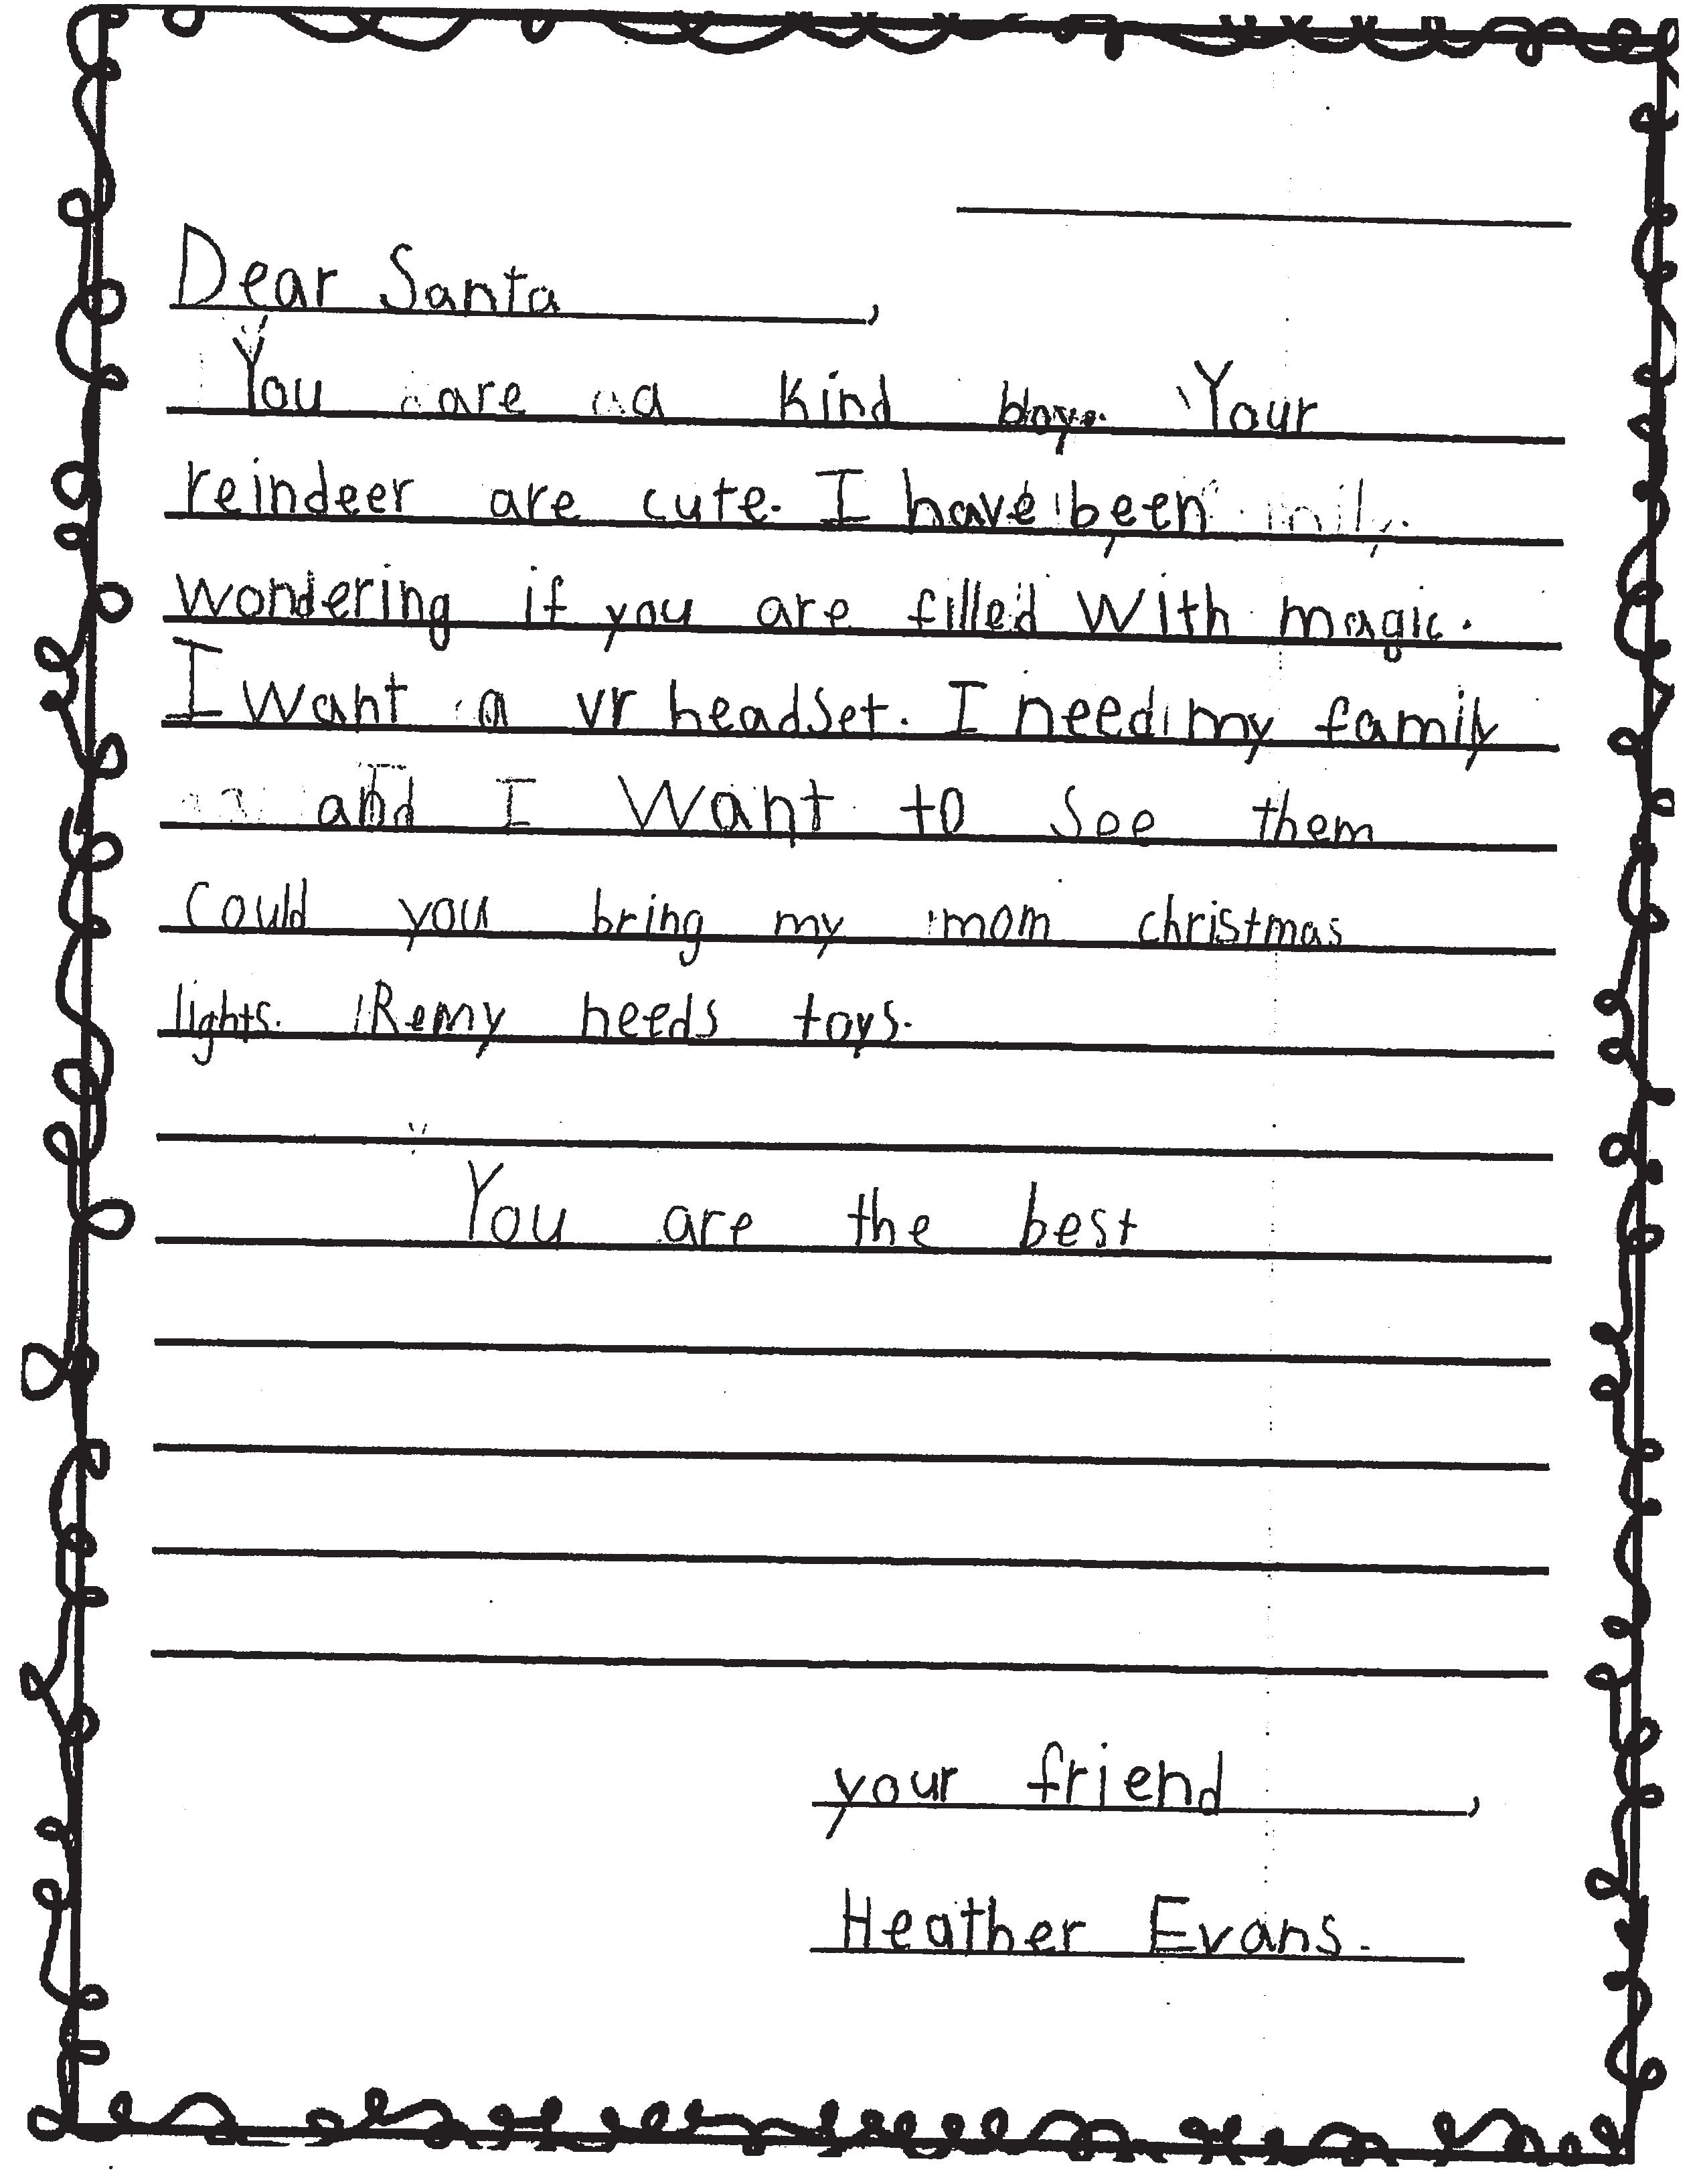 Dear Santa,
You are a kind boy. Your
reindeer are cute. I have been
wondering if you are filled with magic.
I want a vr headset. I need my family
and I want to see them
could you bring my mom christmas
lights. Remy needs toys.
You are the best
your friend,
Heather Evans.